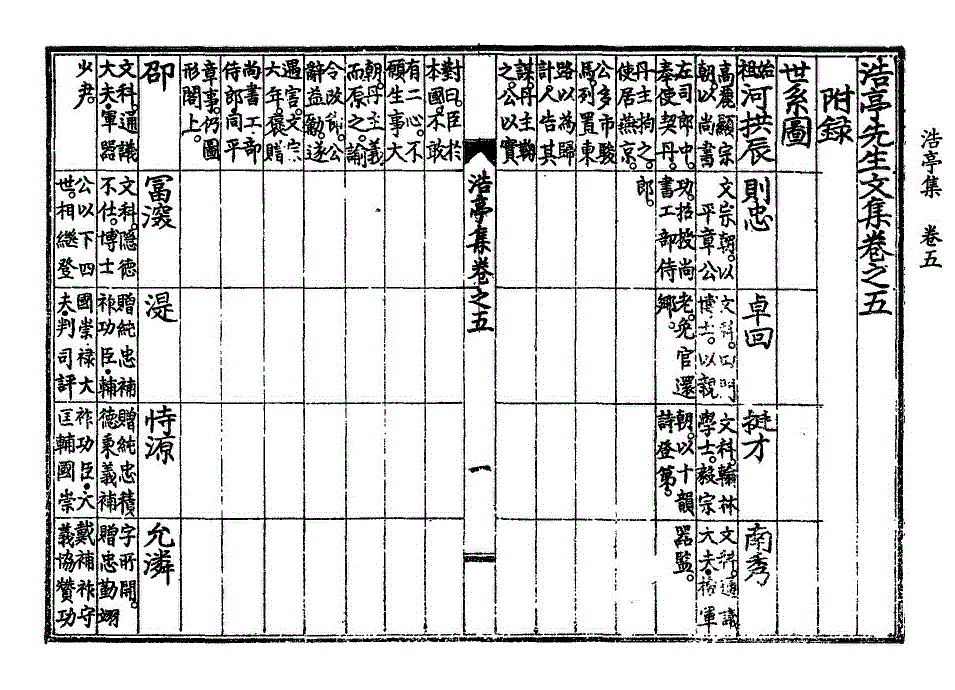 浩亭集 卷五
浩亭先生文集卷之五
附錄
世系圖
始祖河拱辰
高麗顯宗
朝以尚書
左司郎中。
奉使契丹。
丹主拘之。
使居燕京。
公多市駿
馬。列置東
路以為歸
計。人告其
謀丹主鞫
之。公以實
對曰。臣於
本國。不敢
有二心。不
願生事大
朝。丹主義
而原之。諭
令改節。公
辭益勵。遂
遇害。文宗
六年。褒贈
尚書工部
侍郎同平
章事。仍圖
形閣上。
則忠
文宗朝。以
平章公
功。招授尚
書工部侍
郎。
卓回
文科。四門
博士。以親
老。免官還
鄉。
挺才
文科。翰林
學士。毅宗
朝。以十韻
詩登第。
南秀
文科。通議
大夫。檢軍
器監。
浩亭集卷之五
一
邵
文科。通議
大夫。軍器
少尹。
富深
文科。隱德
不仕。博士
公以下四
世。相繼登
湜
贈純忠補
祚功臣。輔
國崇祿大
夫。判司評
恃源
贈純忠積
德秉義補
祚功臣。大
匡輔國崇
允潾
字所開。
贈忠勤翊
戴補祚守
義協贊功